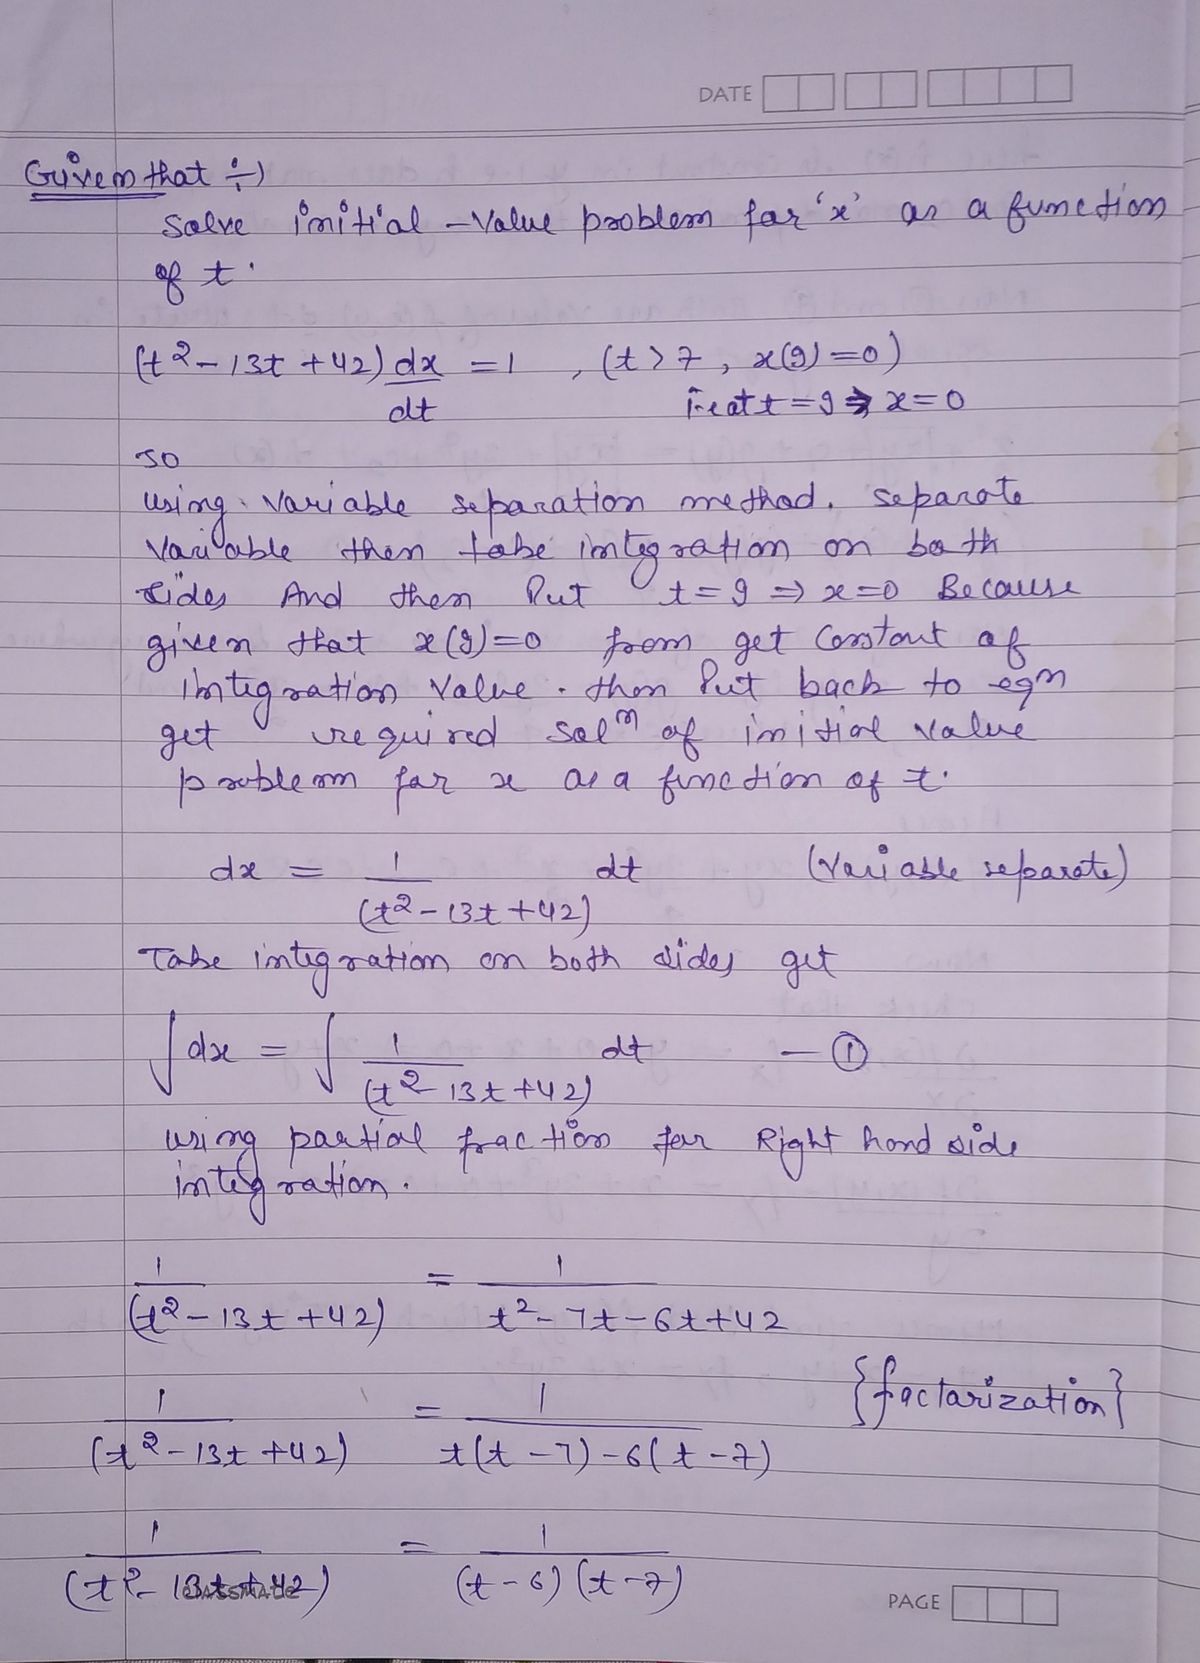 DATE
Given that ÷)
Solve initial - Value problem for 'x' as a function
of t.
(t² - 13t + 42) dx/dt = 1 , (t > 7 , x(9) = 0)
i.e at t = 9 ⇒ x = 0
so
using variable separation method. separate
variable then take integration on both
sides And then Put t = 9 ⇒ x = 0 Because
given that x(9) = 0 from get Constant of
integration Value . then Put back to eqn
get required solⁿ of initial value
problem for x as a function of t.
dx = 1/(t² - 13t + 42) dt (Variable separate)
Take integration on both sides get
∫ dx = ∫ 1/(t² - 13t + 42) dt — ①
using partial fraction for Right hand side
integration .
1/(t² - 13t + 42) = 1/t² - 7t - 6t + 42
{factorization}
1/(t² - 13t + 42) = 1/t(t - 7) - 6(t - 7)
1/(t² - 13t + 42) = 1/(t - 6)(t - 7)
classmate
PAGE